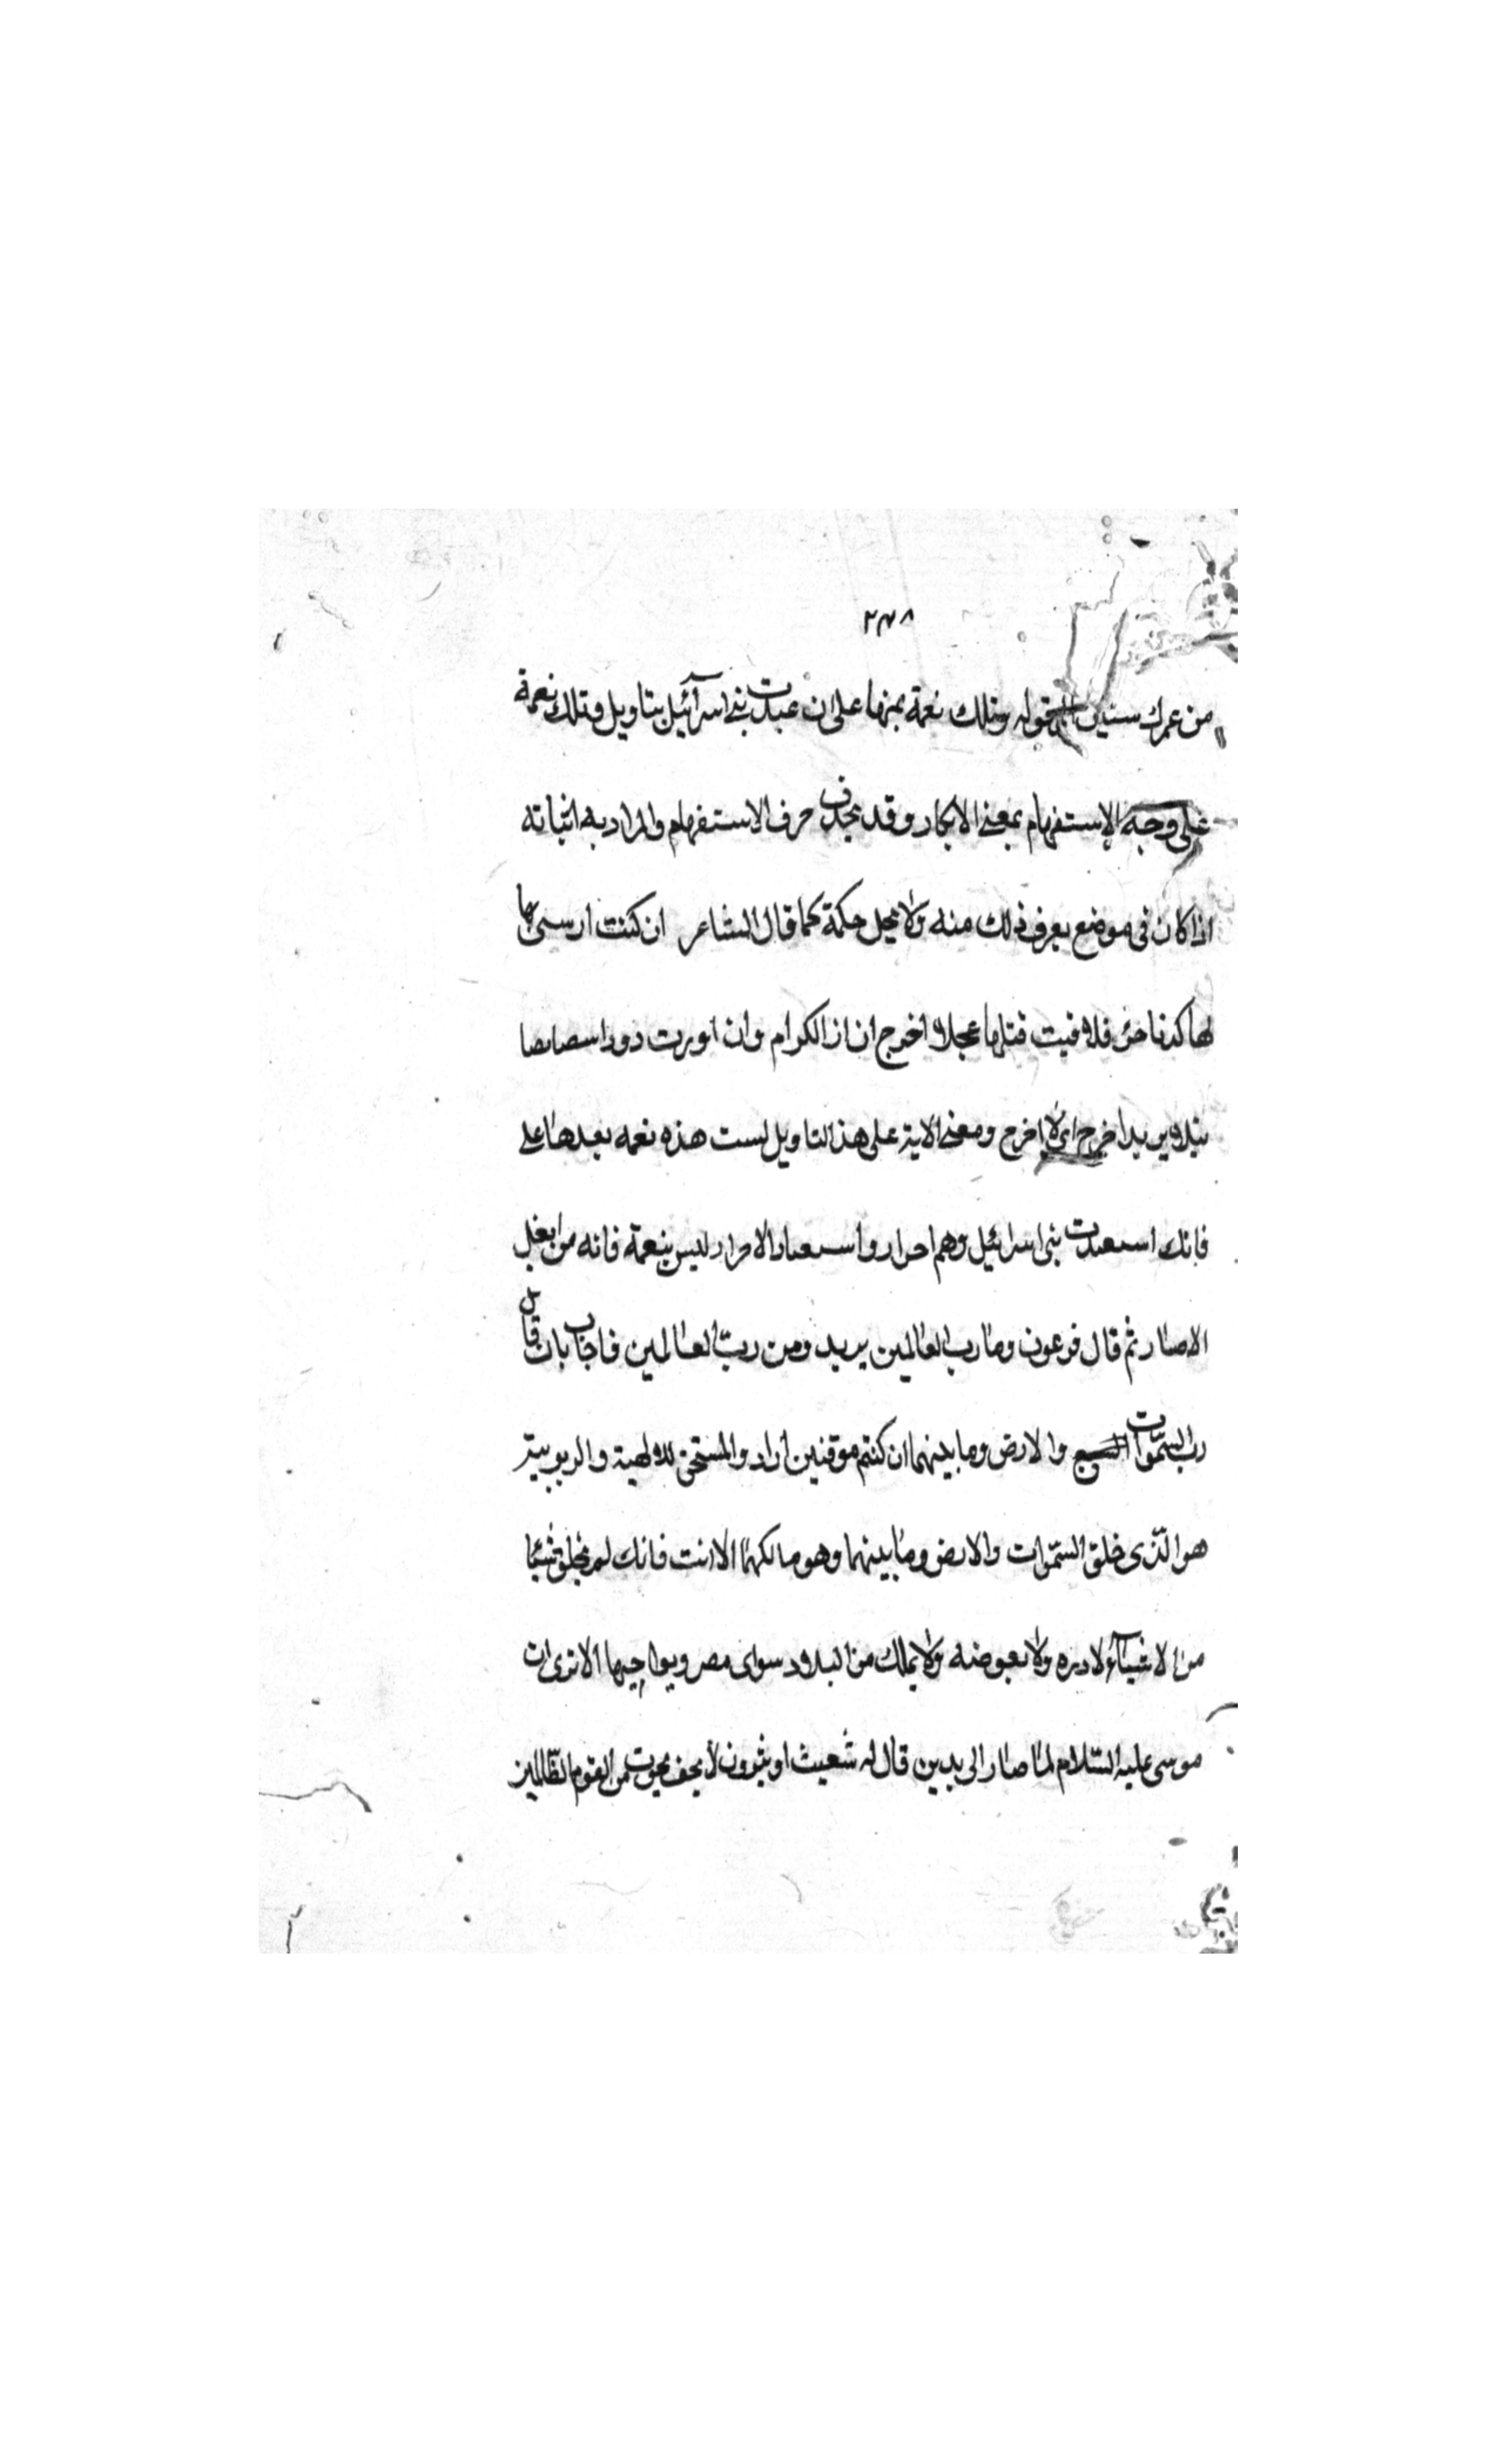 ٢٧٨
من عمرك سنين لقوله وتلك نعمة تمنها على ان عبدت بني اسرآئيل بتاويل وتلك نعمة
على وجه الاستفهام بمعنى الانكار وقد يحذف حرف الاستفهام والمراد به اثباته
اذا كان في موضع يعرف ذلك منه ولا يحل حكمة كما قال الشاعر ان كنت ارسى ما
لها كدنا فلاقيت قتلها عجلا اخرج ان از الكرام وان اورت
يريد اخرج اي لا اخرج ومعنى الاية على هذا التاويل لست هذه نعمه بعدها على
فانك اسعبدت بنى اسرائيل وهم احرار واسعباد الاحرار ليس بنعمة فانه من
الاصار ثم قال فرعون وما رب العالمين يريد ومن ربّ العالمين فاجاب بان قال
رب السّموات والارض وما بينهما ان كنتم موقنين اراد والمستحق للالهية والربوبية
هو الّذى خلق السّموات والارض وما بينهما وهو مالكهما الا انت فانك لم تخلق شيئا
من الاشيآء لا دره ولا بعوضه ولا يملك من البلاد سواى مصر ونواحيها الا ترى ان
موسى عليه السّلام لما صار الى مدين قال له شعيب او يثرون لا تخف نجوت من القوم الظّالمين